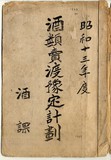 昭和十三年度
酒類賣渡豫定計劃
酒課